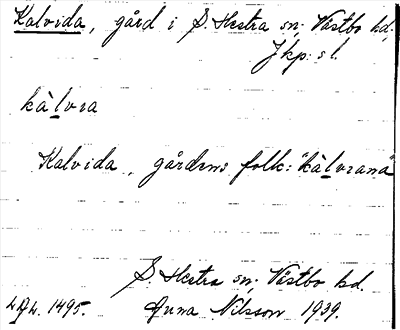 Kalvida, gård i S. Hestra sn; Västbo hd;
Jkp: s l.
kàlvra
Kalvida, gårdens folk: "kàlvrana"
S. Hestra sn; Västbo hd.
4914. 1495. Guna Nilsson 1939.